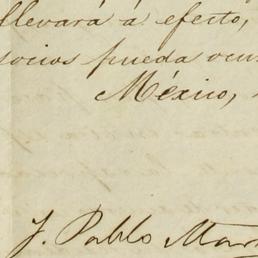 llevará á efecto,
socios pueda ocu
México,
J. Pablo Mar